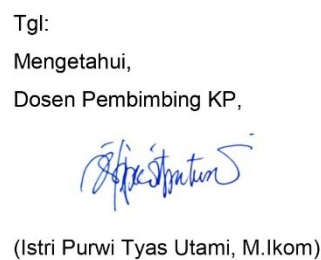 Tgl:
Mengetahui,
Dosen Pembimbing KP,
(Istri Purwi Tyas Utami, M.Ikom)